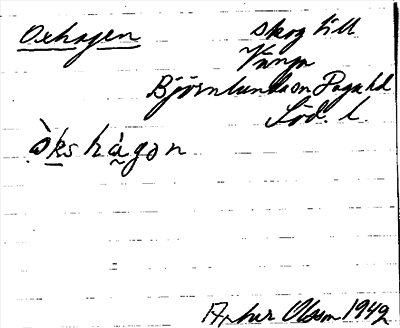 Oxhagen skog till
Vånga
Björnlunda sn Daga hd
Söd. l.
òkshàgon
Arthur Olsson 1942